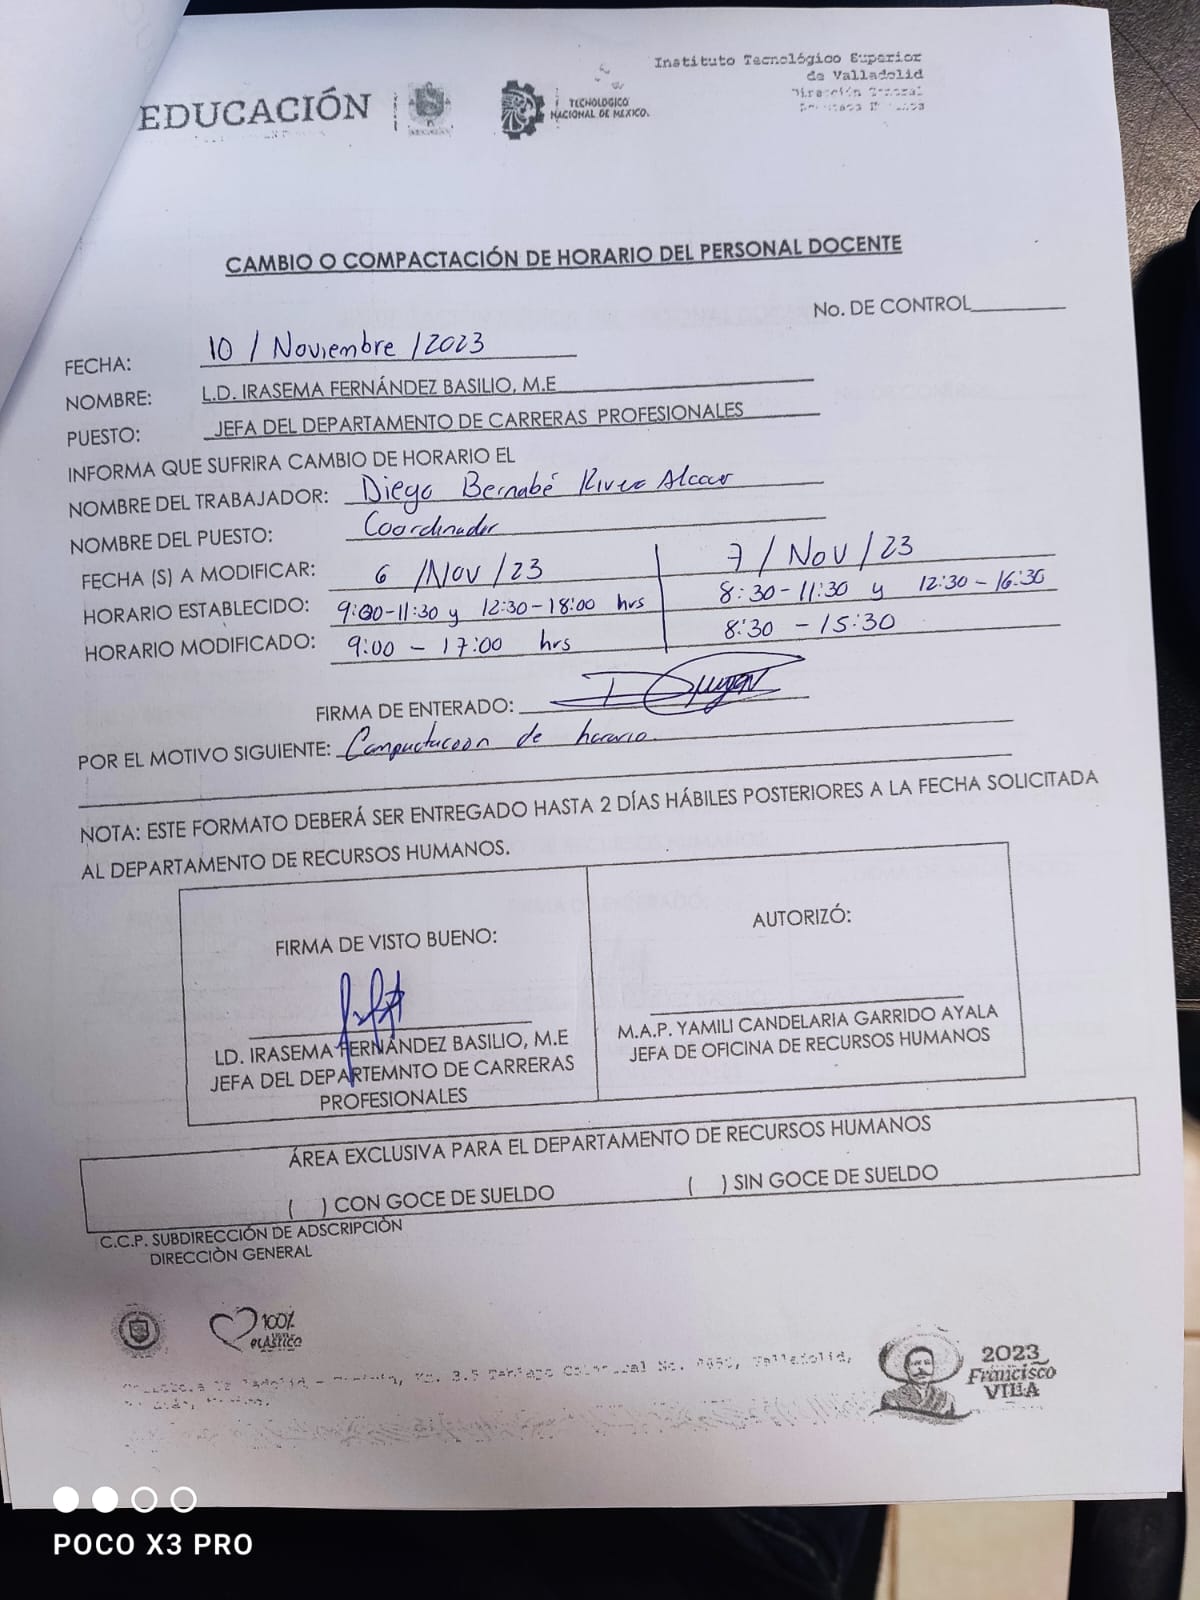 Instituto Tecnológico Superior
de Valladolid
Dirección General
EDUCACIÓN
TECNOLÓGICO
NACIONAL DE MÉXICO.
CAMBIO O COMPACTACIÓN DE HORARIO DEL PERSONAL DOCENTE
No. DE CONTROL
FECHA: 10 / Noviembre / 2023
NOMBRE: L.D. IRASEMA FERNÁNDEZ BASILIO, M.E
PUESTO: JEFA DEL DEPARTAMENTO DE CARRERAS PROFESIONALES
INFORMA QUE SUFRIRA CAMBIO DE HORARIO EL
NOMBRE DEL TRABAJADOR: Diego Bernabé
NOMBRE DEL PUESTO: Coordinador
FECHA (S) A MODIFICAR: 6 /Nov /23 7 / Nov / 23
HORARIO ESTABLECIDO: 9:00-11:30 y 12:30-18:00 hrs 8:30-11:30 y 12:30-16:30
HORARIO MODIFICADO: 9:00 - 17:00 hrs 8:30 - 15:30
FIRMA DE ENTERADO:
POR EL MOTIVO SIGUIENTE: Compactacion de horario.
NOTA: ESTE FORMATO DEBERÁ SER ENTREGADO HASTA 2 DÍAS HÁBILES POSTERIORES A LA FECHA SOLICITADA
AL DEPARTAMENTO DE RECURSOS HUMANOS.
FIRMA DE VISTO BUENO:
LD. IRASEMA FERNÁNDEZ BASILIO, M.E
JEFA DEL DEPARTEMNTO DE CARRERAS
PROFESIONALES
AUTORIZÓ:
M.A.P. YAMILI CANDELARIA GARRIDO AYALA
JEFA DE OFICINA DE RECURSOS HUMANOS
ÁREA EXCLUSIVA PARA EL DEPARTAMENTO DE RECURSOS HUMANOS
( ) CON GOCE DE SUELDO ( ) SIN GOCE DE SUELDO
C.C.P. SUBDIRECCIÓN DE ADSCRIPCIÓN
DIRECCIÒN GENERAL
100%
PLÁSTICO
Km. 3.5 Valladolid,
2023
Francisco
VILLA
POCO X3 PRO